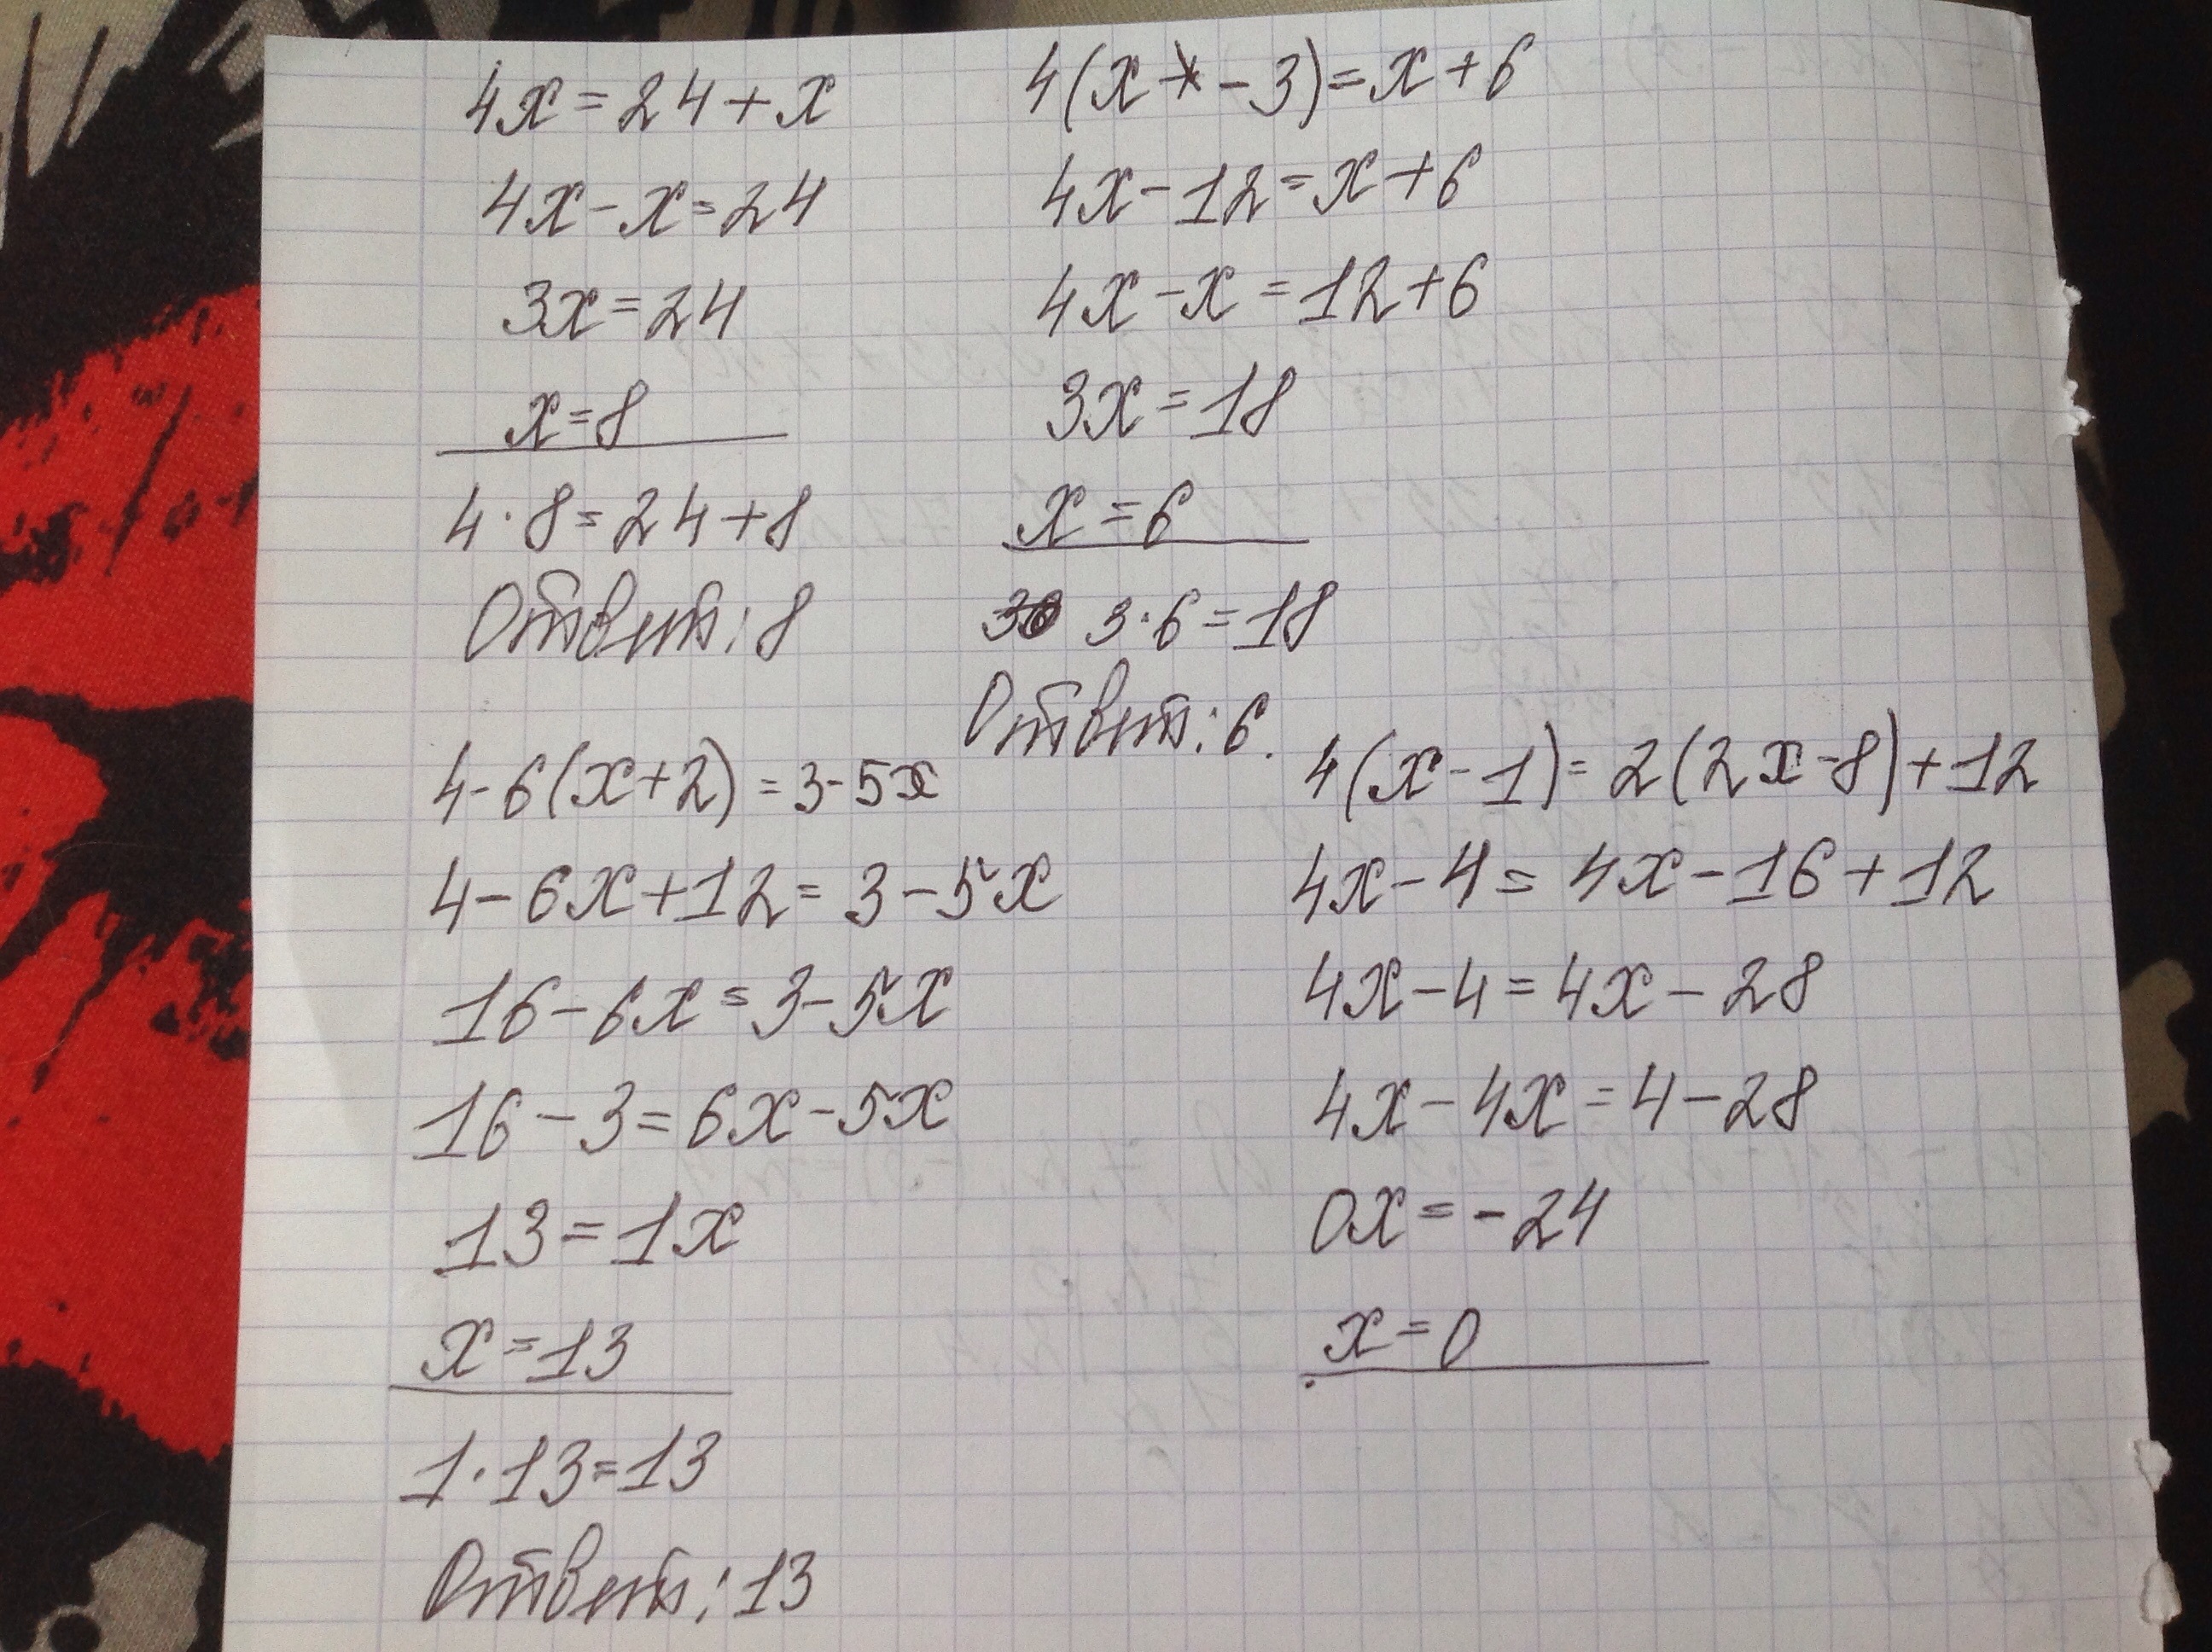 4x=24+x
4x-x=24
3x=24
x=8
4·8=24+8
Ответ: 8
4(x-3)=x+6
4x-12=x+6
4x-x=12+6
3x=18
x=6
3·6=18
Ответ: 6.
4-6(x+2)=3-5x
4-6x+12=3-5x
16-6x=3-5x
16-3=6x-5x
13=1x
x=13
1·13=13
Ответ: 13
4(x-1)=2(2x-8)+12
4x-4=4x-16+12
4x-4=4x-28
4x-4x=4-28
0x=-24
x=0